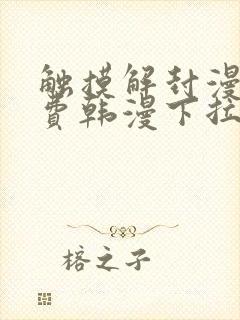 触摸解封漫
费韩漫下拉
榕之子